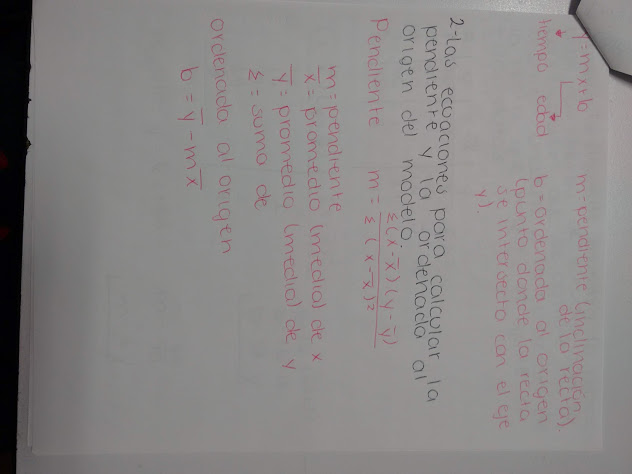 y = mx+b
tiempo edad
m=pendiente (inclinación
de la recta).
b=ordenada al origen
(punto donde la recta
se intersecta con el eje
y).
2-Las ecuaciones para calcular la
pendiente y la ordenada al
origen del modelo.
Pendiente m = Σ(x-x̅)(y-y̅) / Σ(x-x̅)²
m=pendiente
x̅=promedio (media) de x
y̅=promedio (media) de y
Σ=suma de
ordenada al origen
b = y̅ - mx̅